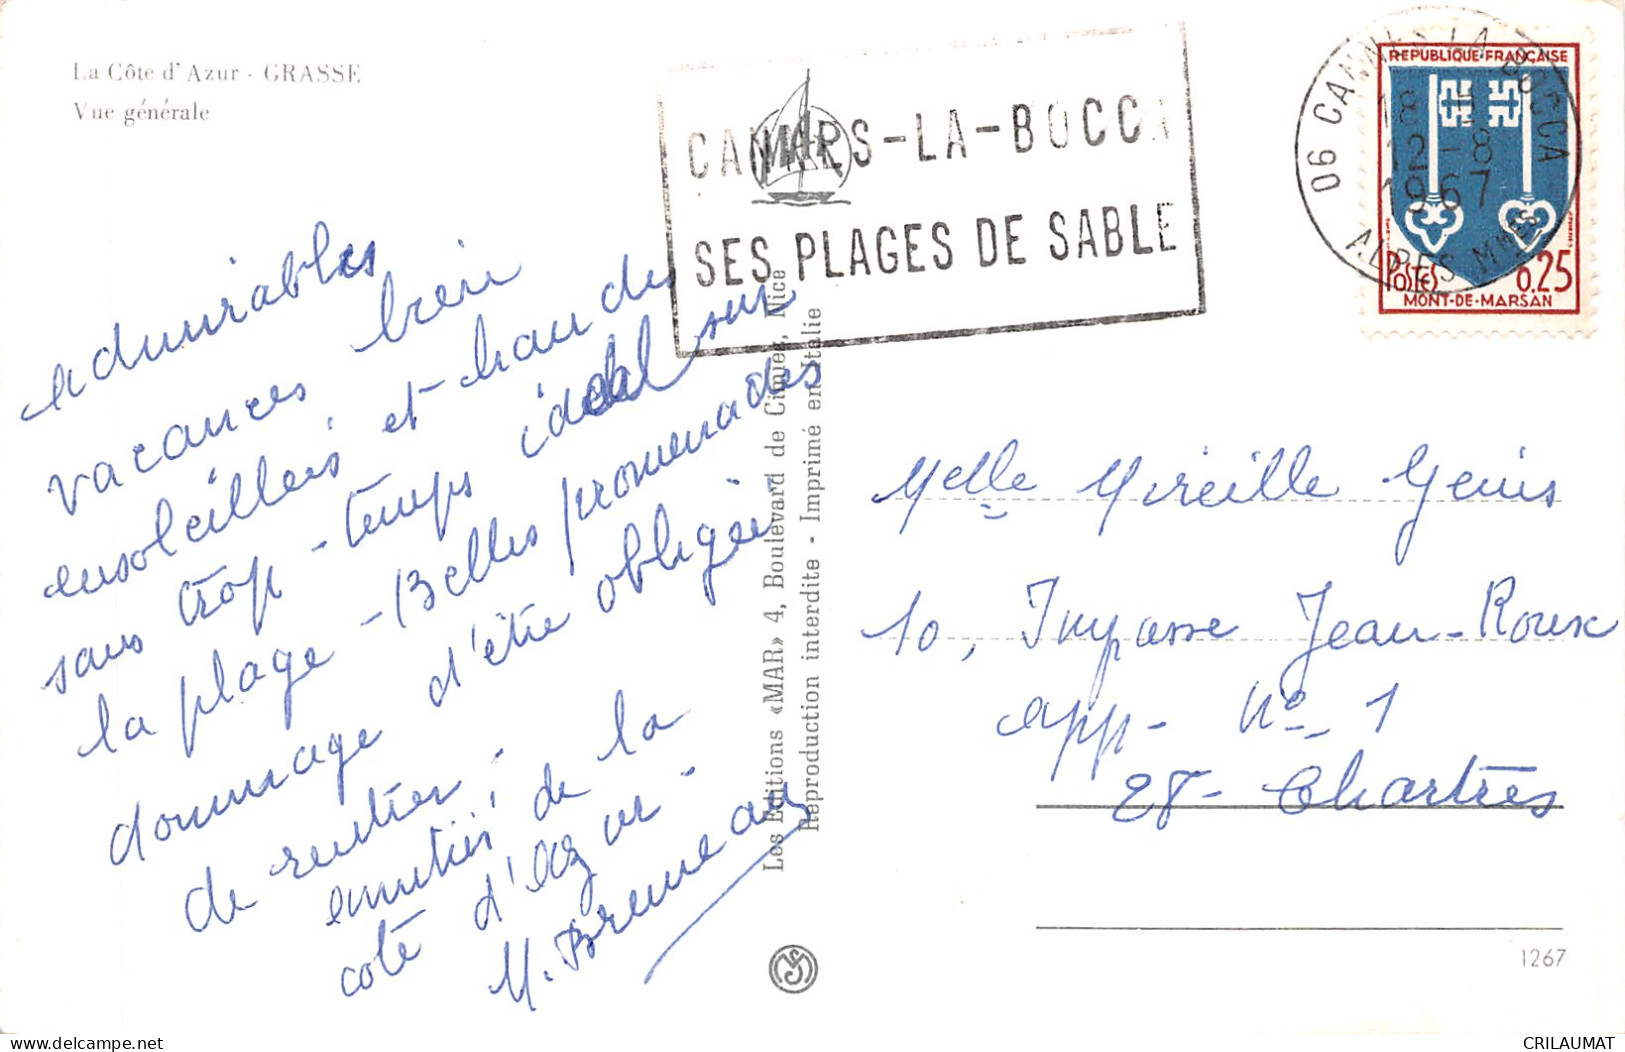 La Côte d'Azur - GRASSE
Vue générale
CANNES-LA-BOCCA
SES PLAGES DE SABLE
MAR
06 CANNES-LA-BOCCA
18 H
12-8
1967
ALPES Mmes
REPUBLIQUE·FRANÇAISE
POSTES 0,25
MONT-DE-MARSAN
admirables
vacances bien
ensoleillées et chaudes
sans trop - temps idéal sur
la plage - Belles promenades
dommage d'être obligés
de rentrer.
amitiés de la
cote d'azur -
Les Editions «MAR» 4, Boulevard de Cimiez, Nice
Reproduction interdite - Imprimé en Italie
Melle Mireille Genis
10, Impasse Jean-Roux
app- No 1
28- Chartres
1267
CRILAUMAT